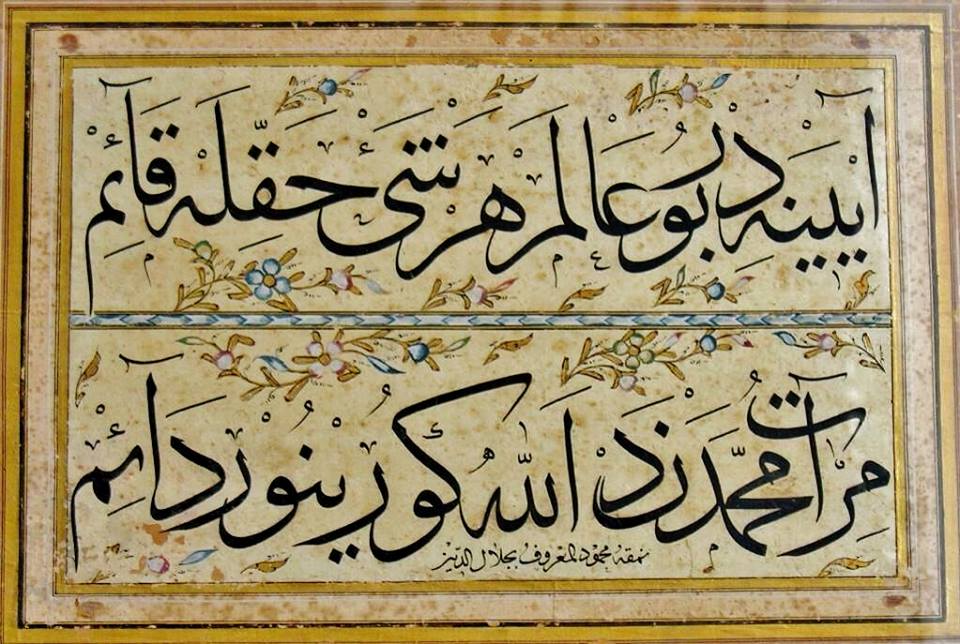 آيينه در بو عالم هر شئ حقله قائم
مرآت محمددن الله كورينور دائم
نمقه محمود المعروف بجلال الدين